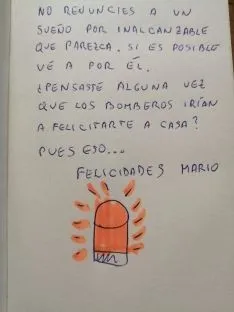 NO RENUNCIES A UN
SUEÑO POR INALCANZABLE
QUE PAREZCA. SI ES POSIBLE
VÉ A POR ÉL.
¿PENSASTE ALGUNA VEZ
QUE LOS BOMBEROS IRÍAN
A FELICITARTE A CASA?
PUES ESO...
FELICIDADES MARIO